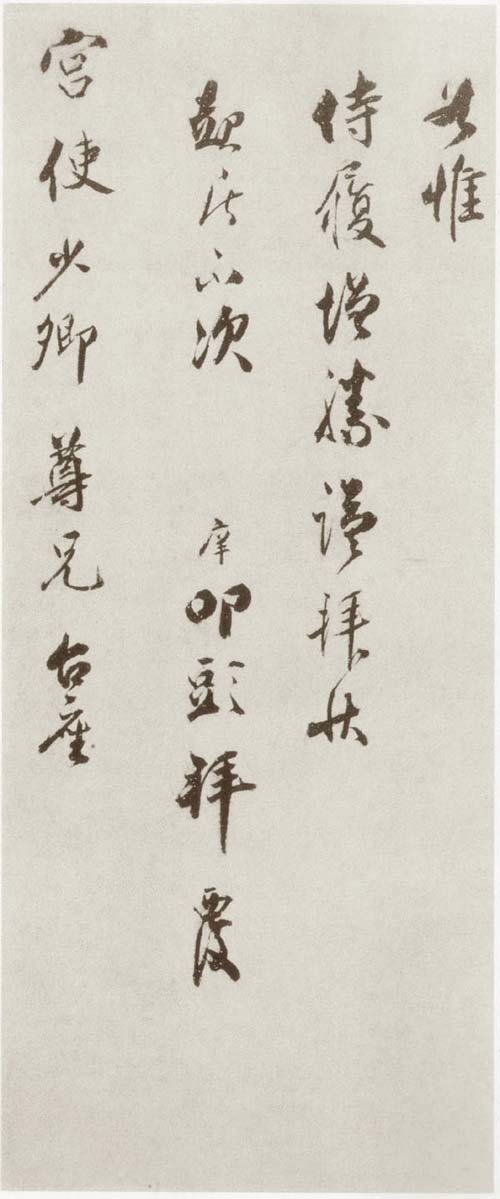 共惟
侍履增勝謹拜狀
起居不次 庠叩頭拜覆
宫使少卿尊兄台座